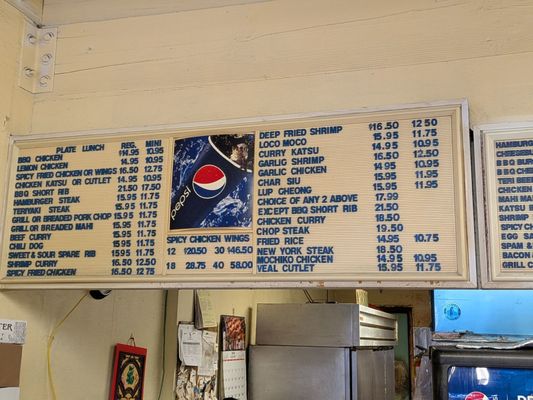 PLATE LUNCH REG. MINI
BBQ CHICKEN $14.95 10.95
LEMON CHICKEN 14.95 10.95
SPICY FRIED CHICKEN OR WINGS 16.50 12.75
CHICKEN KATSU OR CUTLET 14.95 10.95
BBQ SHORT RIB 21.50 17.50
HAMBURGER STEAK 15.95 11.75
TERIYAKI STEAK 15.95 11.75
GRILL OR BREADED PORK CHOP 15.95 11.75
GRILL OR BREADED MAHI 15.95 11.75
BEEF CURRY 15.95 11.75
CHILI DOG 15.95 11.75
SWEET & SOUR SPARE RIB 15.95 11.75
SHRIMP CURRY 16.50 12.50
SPICY FRIED CHICKEN 16.50 12.75
pepsi
SPICY CHICKEN WINGS
12 $20.50 30 $46.50
18 28.75 40 58.00
DEEP FRIED SHRIMP $16.50 12 50
LOCO MOCO 15.95 11.75
CURRY KATSU 15.95 11.75
GARLIC SHRIMP 16.50 12.50
GARLIC CHICKEN 15.95 11.75
CHAR SIU 15.95 11.75
LUP CHEONG 15.95 11.75
CHOICE OF ANY 2 ABOVE 17.99
EXCEPT BBQ SHORT RIB 21.50
CHICKEN CURRY 18.50
CHOP STEAK 19.50
FRIED RICE 14.95 10.75
NEW YORK STEAK 18.50
MOCHIKO CHICKEN 14.95 10.95
VEAL CUTLET 15.95 11.75